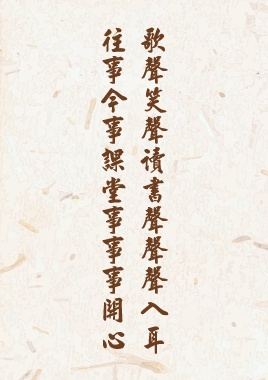 歌聲笑聲讀書聲聲聲入耳
往事今事課堂事事事開心